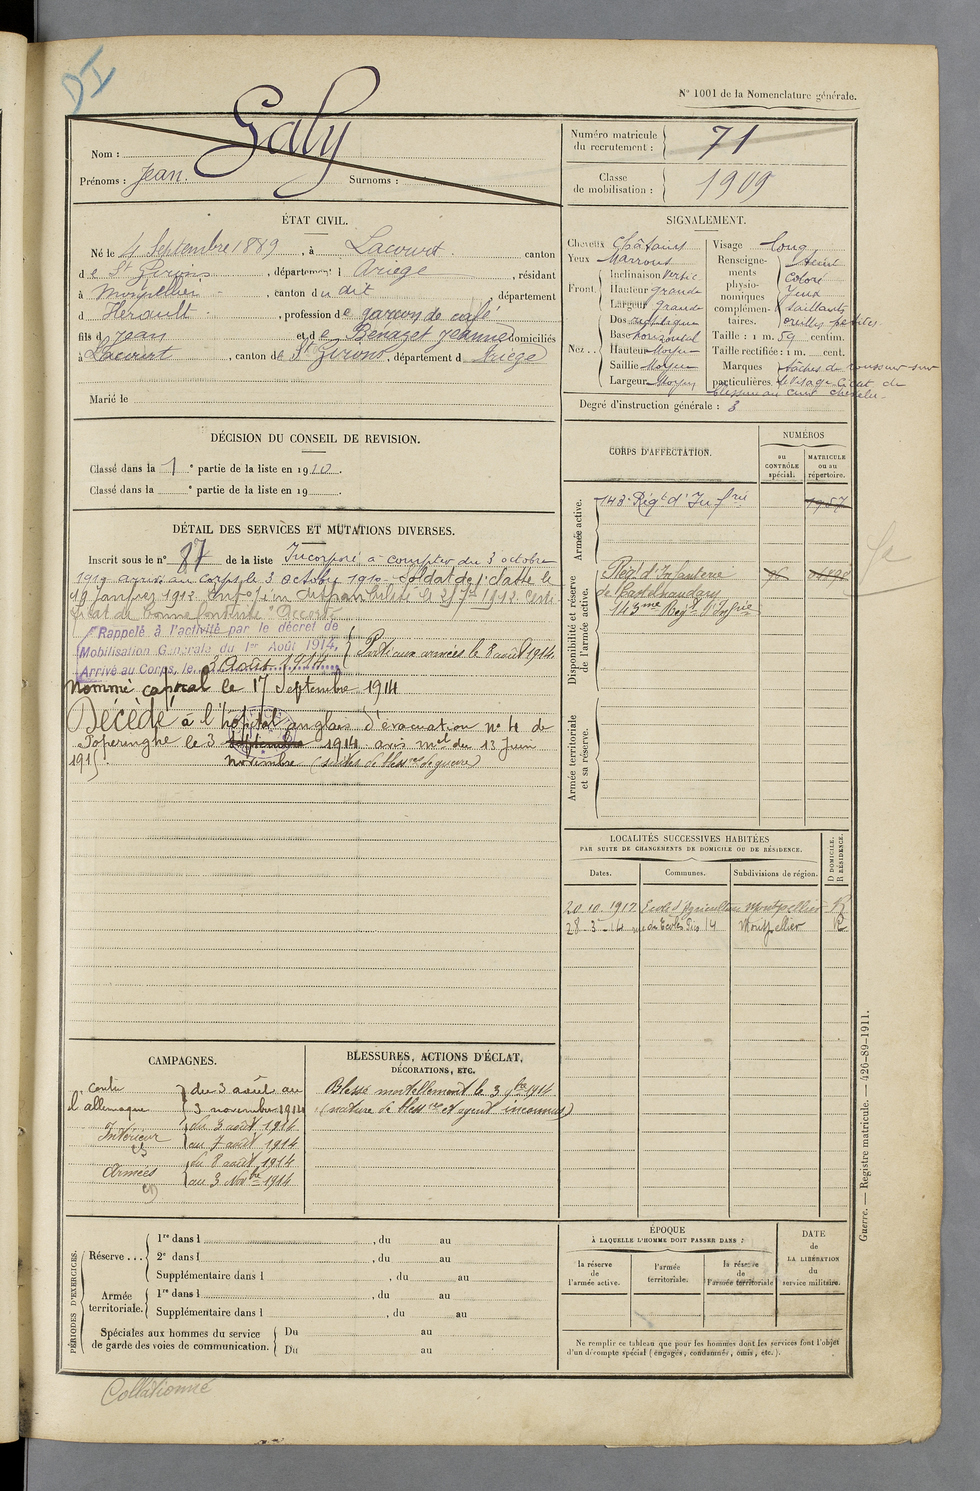 DI
N° 1001 de la Nomenclature générale.
Galy
Nom :
Prénoms : Jean. Surnoms :
Numéro matricule du recrutement : 71
Classe de mobilisation : 1909
ÉTAT CIVIL.
Né le 4 Septembre 1889, à Lacourt canton
de St Girons, département d Ariège, résidant
à Montpellier, canton du dit, département
d Hérault, profession de garçon de café
fils d Jean et de Benazet Jeanne domiciliés
à Lacourt, canton de St Girons, département d Ariège
Marié le
SIGNALEMENT.
Cheveux Châtains
Yeux Marrons
Front. Inclinaison Vertic
Hauteur grande
Largeur grande
Nez.. Dos
Base horizontal
Hauteur Moyen
Saillie Moyen
Largeur Moyen
Visage long
Renseignements physionomiques complémentaires. teint
coloré
Yeux
saillants
oreilles petites
Taille : 1 m. 59 centim.
Taille rectifiée : 1 m. cent.
Marques particulières. tâches de rousseur sur
le visage Cicat. de
blessure au cuir chevelu.
Degré d'instruction générale : 3
DÉCISION DU CONSEIL DE REVISION.
Classé dans la 1e partie de la liste en 1910.
Classé dans la e partie de la liste en 19
CORPS D'AFFECTATION.
NUMÉROS
au CONTRÔLE spécial.
MATRICULE ou au répertoire.
Armée active.
143e Régt d'Infrie
Disponibilité et réserve de l'armée active.
Régt d'Infanterie
de Castelnaudary
143me Regt d'Infrie
Armée territoriale et sa réserve.
DÉTAIL DES SERVICES ET MUTATIONS DIVERSES.
Inscrit sous le n° 87 de la liste Incorporé à compter du 3 octobre
1910 arrivé au corps le 3 octobre 1910 soldat de 1e classe le
en disponibilité le 25 7bre 1912. Certi-
ficat de bonne conduite "Accordé"
Rappelé à l'activité par le décret de
Mobilisation Générale du 1er Août 1914,
Arrivé au Corps, le 3 Août 1914
Parti aux armées le 8 août 1914.
Nommé caporal le 17 Septembre 1914
Décédé à l'hôpital anglais d'évacuation n° 4 de
Poperinghe le 3 septembre 1914 avis mel du 13 Juin
1915. novembre (suites de blessres de guerre)
LOCALITÉS SUCCESSIVES HABITÉES
PAR SUITE DE CHANGEMENTS DE DOMICILE OU DE RÉSIDENCE.
Dates. Communes. Subdivisions de région. D DOMICILE. R RÉSIDENCE.
20.10.1912 Ecole d'Agriculture Montpellier R
28-3-14 14 Montpellier R
CAMPAGNES.
contre l'allemagne du 3 août au
3 novembre 1914
Intérieur du 3 août 1914
au 7 août 1914
Armées du 8 août 1914
au 3 Novbre 1914
BLESSURES, ACTIONS D'ÉCLAT,
DÉCORATIONS, ETC.
Blessé mortellement le 3 9bre 1914
(nature de blessre et agent inconnus)
PÉRIODES D'EXERCICES.
Réserve... 1re dans l , du au
2e dans l , du au
Supplémentaire dans l , du au
Armée territoriale. 1re dans l , du au
Supplémentaire dans l , du au
Spéciales aux hommes du service de garde des voies de communication. Du au
Du au
ÉPOQUE
À LAQUELLE L'HOMME DOIT PASSER DANS :
la réserve de l'armée active.
l'armée territoriale.
la réserve de l'armée territoriale
DATE de LA LIBÉRATION du service militaire.
Ne remplir ce tableau que pour les hommes dont les services font l'objet
d'un décompte spécial (engagés, condamnés, omis, etc.).
Guerre. — Registre matricule. — 426-89-1911.
Collationné